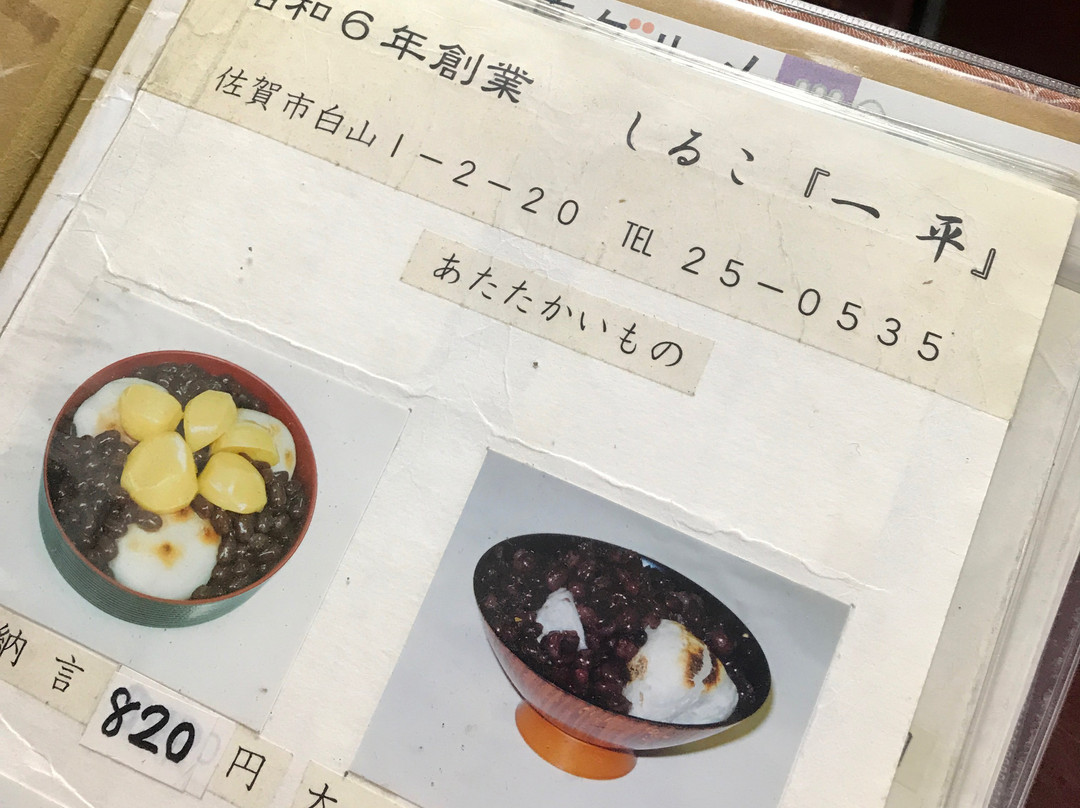 昭和6年創業
しるこ『一 平』
佐賀市白山1-2-20 TEL 25-0535
あたたかいもの
納言
820円
大